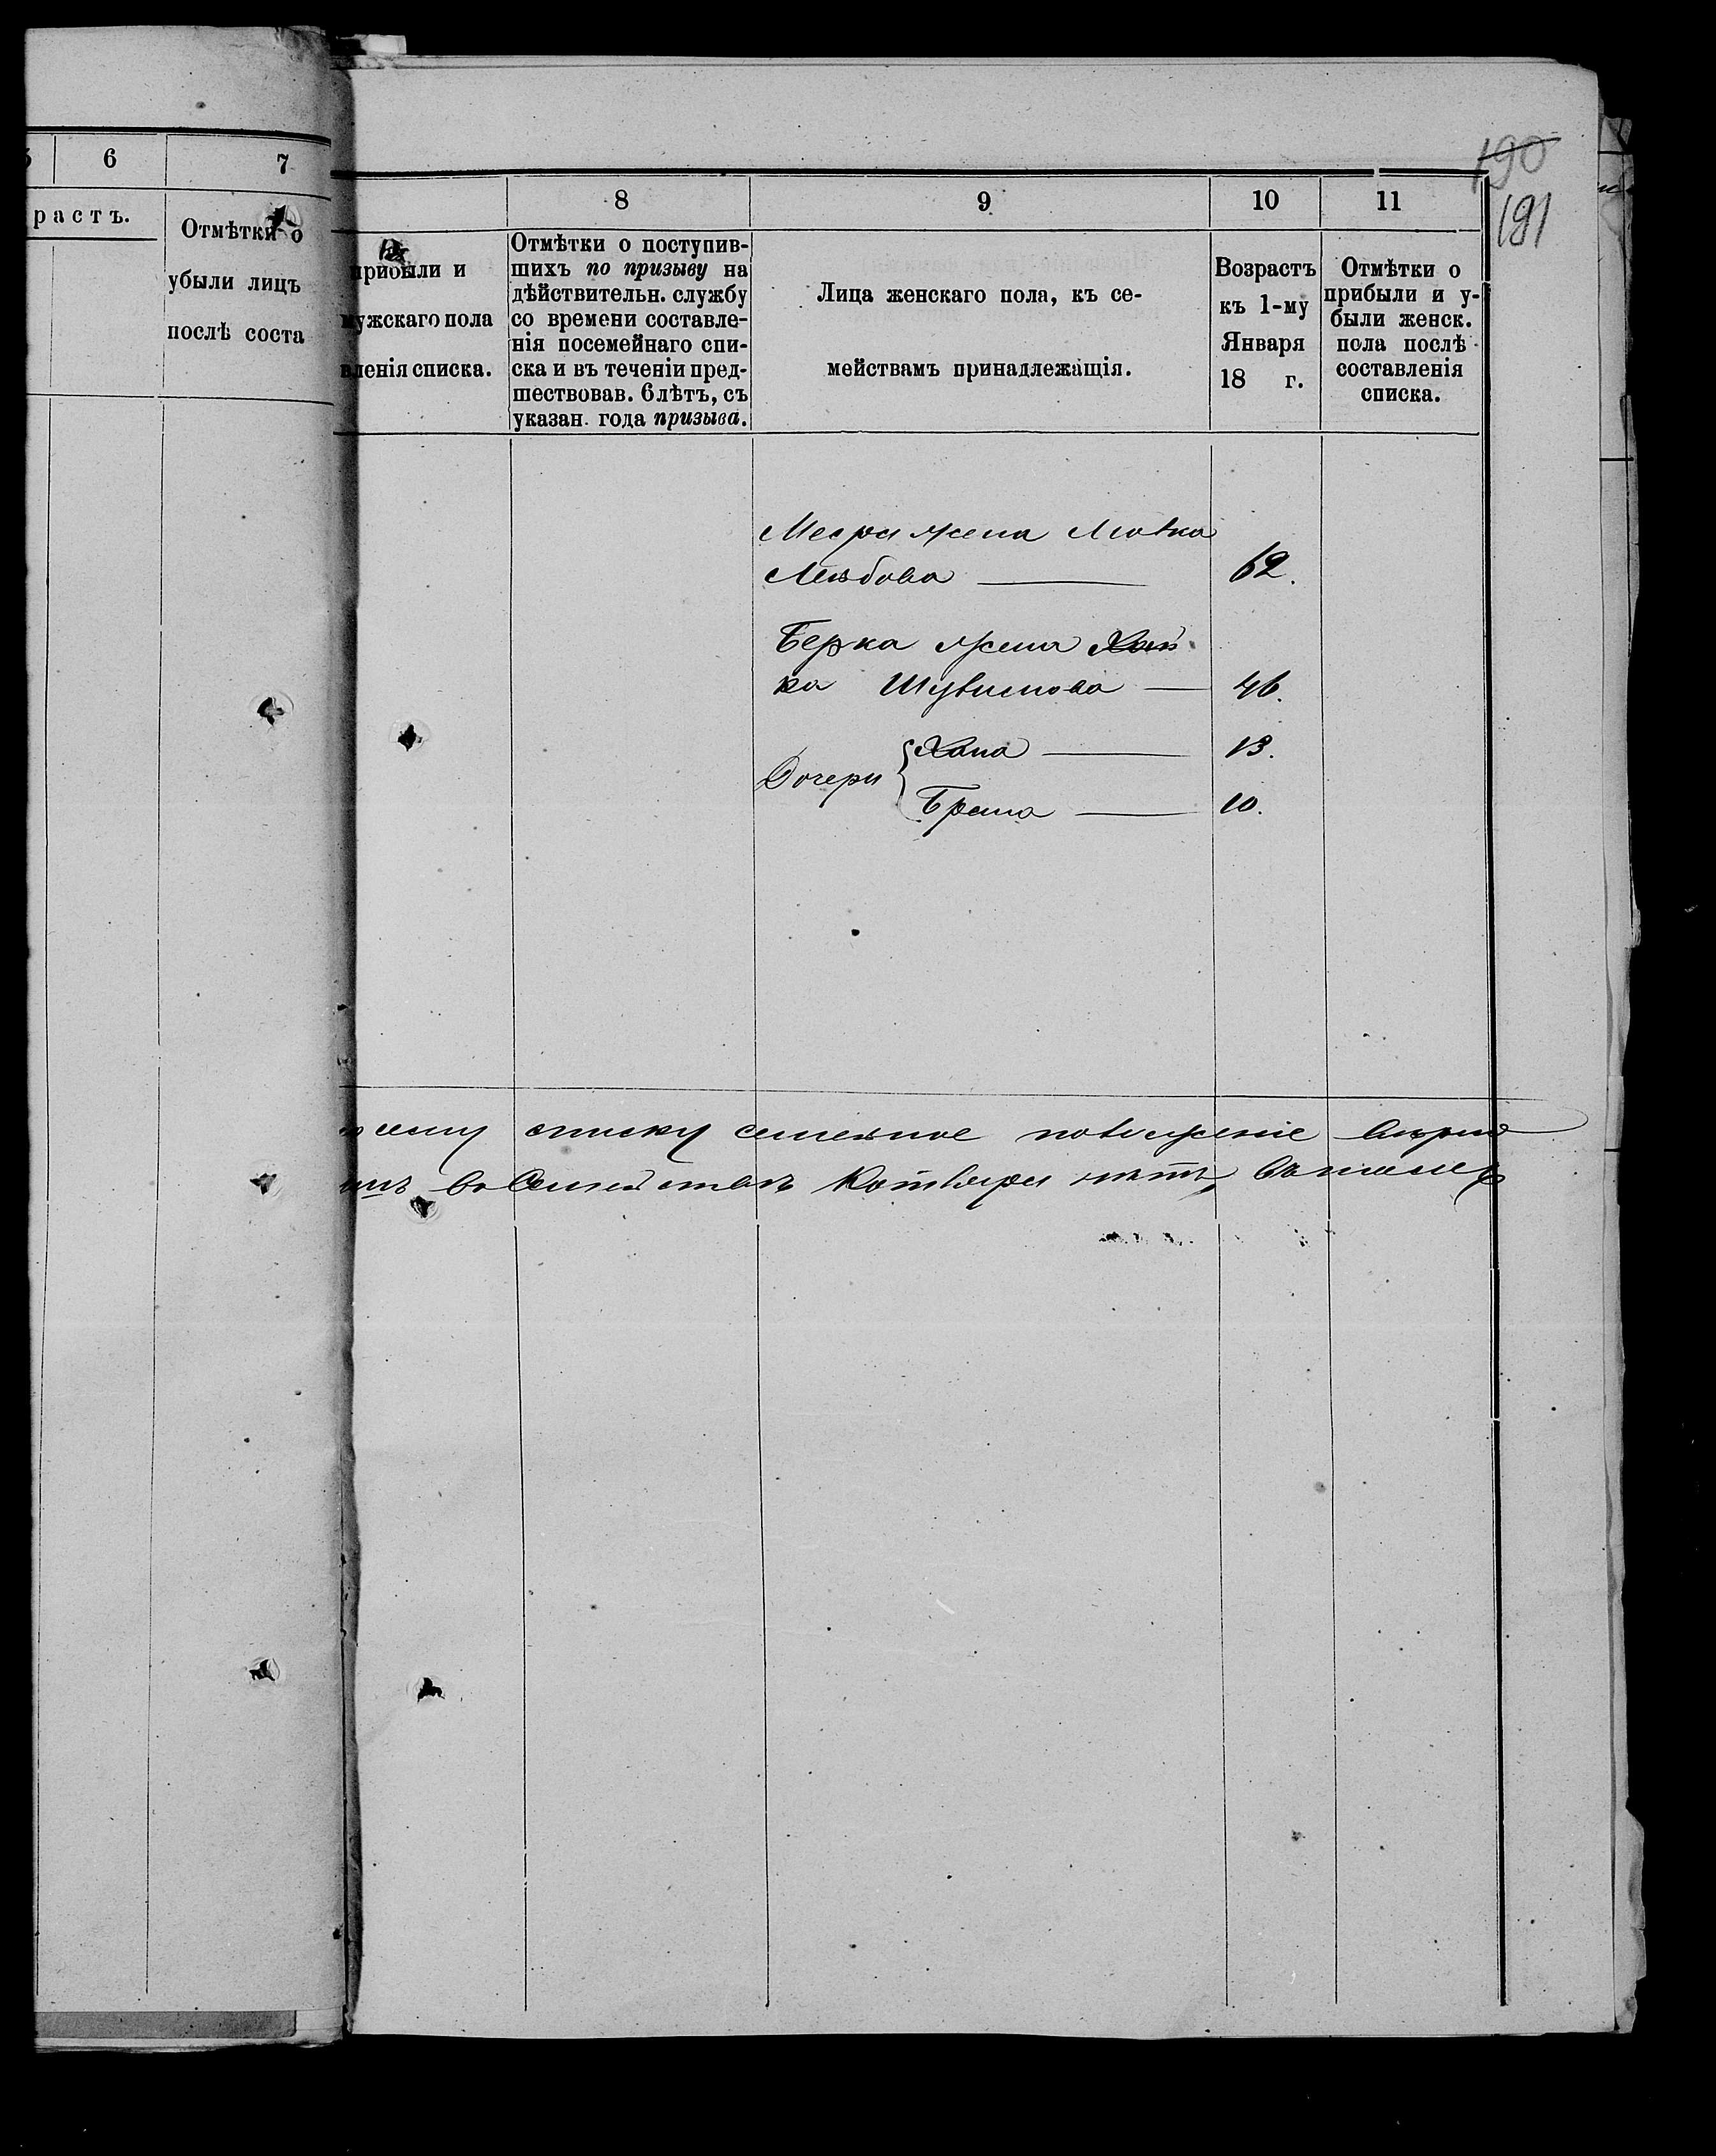 6 7
растъ.
Отмѣтки о
убыли лицъ
послѣ соста
190
191
8 9 10 11
прибыли и
мужскаго пола
вленія списка.
Отмѣтки о поступив-
шихъ по призыву на
дѣйствительн. службу
со времени составле-
нія посемейнаго спи-
ска и въ теченіи пред-
шествовав. 6 лѣтъ, съ
указан. года призыва.
Лица женскаго пола, къ се-
мействамъ принадлежащія.
Возрастъ
къ 1-му
Января
18 г.
Отмѣтки о
прибыли и у-
были женск.
пола послѣ
составленія
списка.
жена
Лейбова 62.
Берка жена Хай
ка 46.
Дочери { Хана 13.
10.
сему списку семейное положеніе вѣрно
въ Семействѣ нѣтъ,